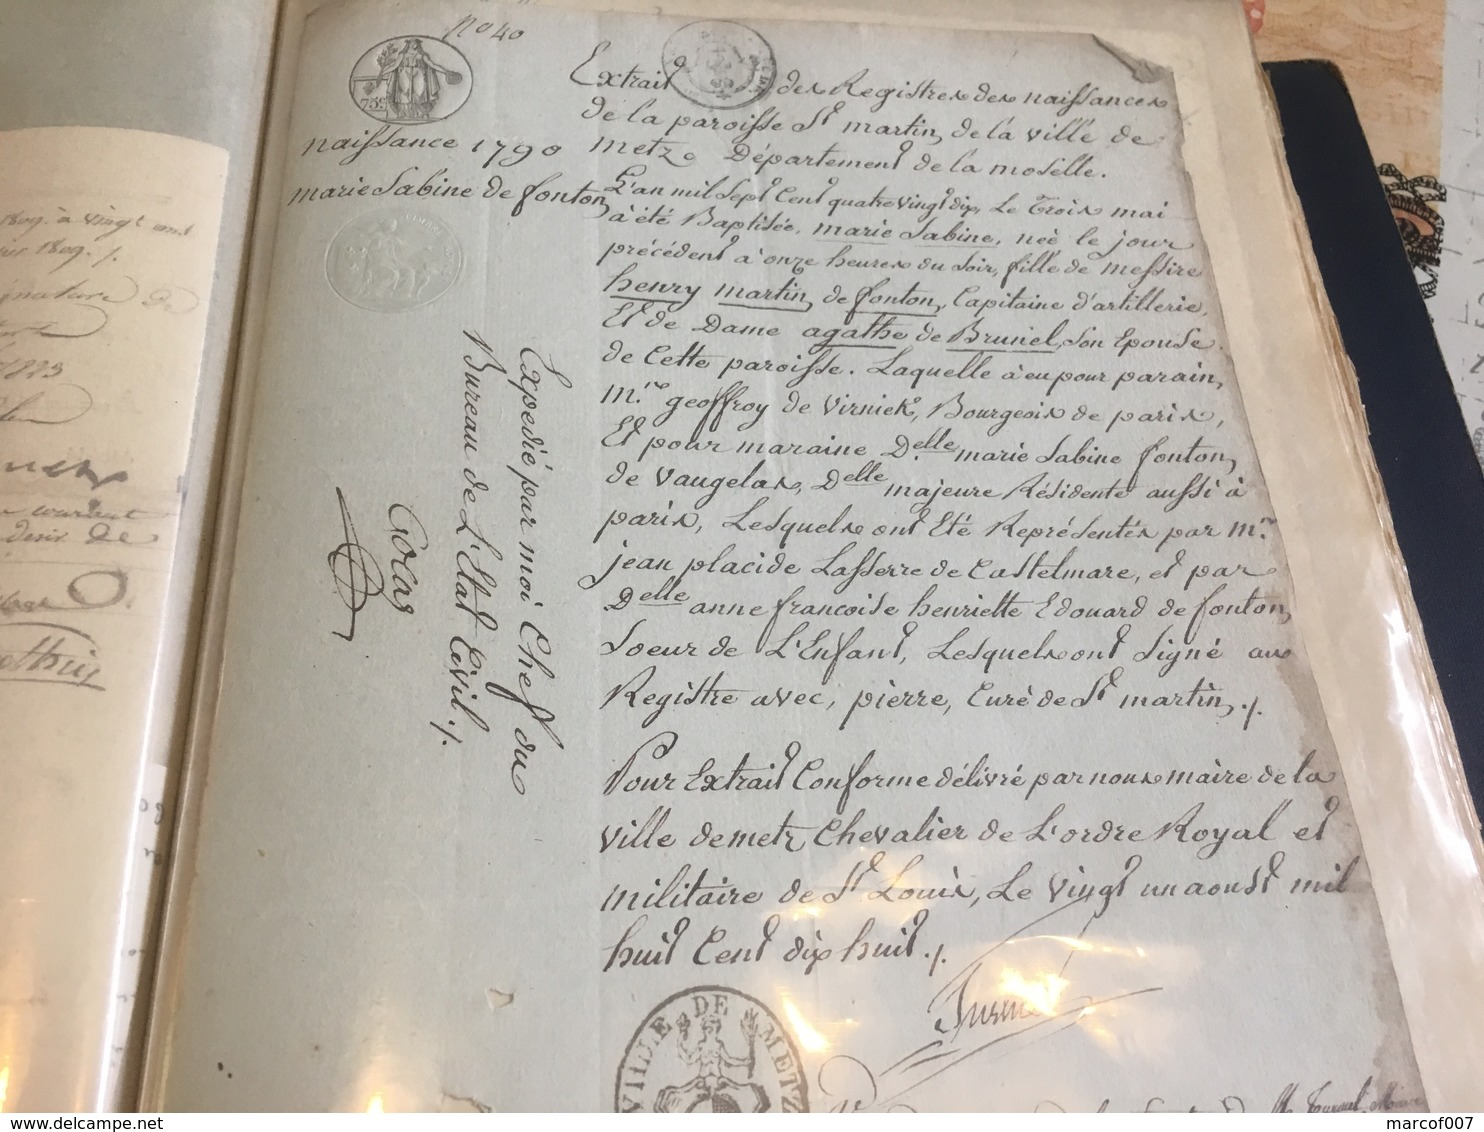 no 40
Extrait des Registres des naissances
de la paroisse St martin, de la ville de
metz. Département de la moselle.
naissance 1790
marie Sabine de fonton
L'an mil Sept Cent quatre vingt dix, Le Trois mai
à été Baptisée, marie Sabine, neé le jour
précédent à onze heures du Soir, fille de messire
henry martin de fonton, Capitaine d'artillerie,
Et de Dame agathe de Bruniel, Son Epouse
de Cette paroisse. Laquelle à eu pour parain,
m.re geoffroy de Virniek, Bourgeois de paris,
Et pour maraine Delle marie Sabine fonton
de Vaugelas, Delle majeure Résidente aussi à
paris, Lesquels ont Eté Représentés par mr.
jean placide Lasserre de Castelmare, et par
Delle anne francoise henriette Edouard de fonton,
Soeur de L'Enfant, Lesquels ont Signé au
Registre avec, pierre, Curé de St martin./.
Pour Extrait Conforme délivré par nous maire de la
ville de metz Chevalier de L'ordre Royal et
militaire de St Louis, Le Vingt un aoust mil
huit Cent dix huit./.
Expedié par moi Chef du
Bureau de L'Etat Civil./.
VILLE DE METZ
1809. à vingt
1809. /.
1823
marcof007